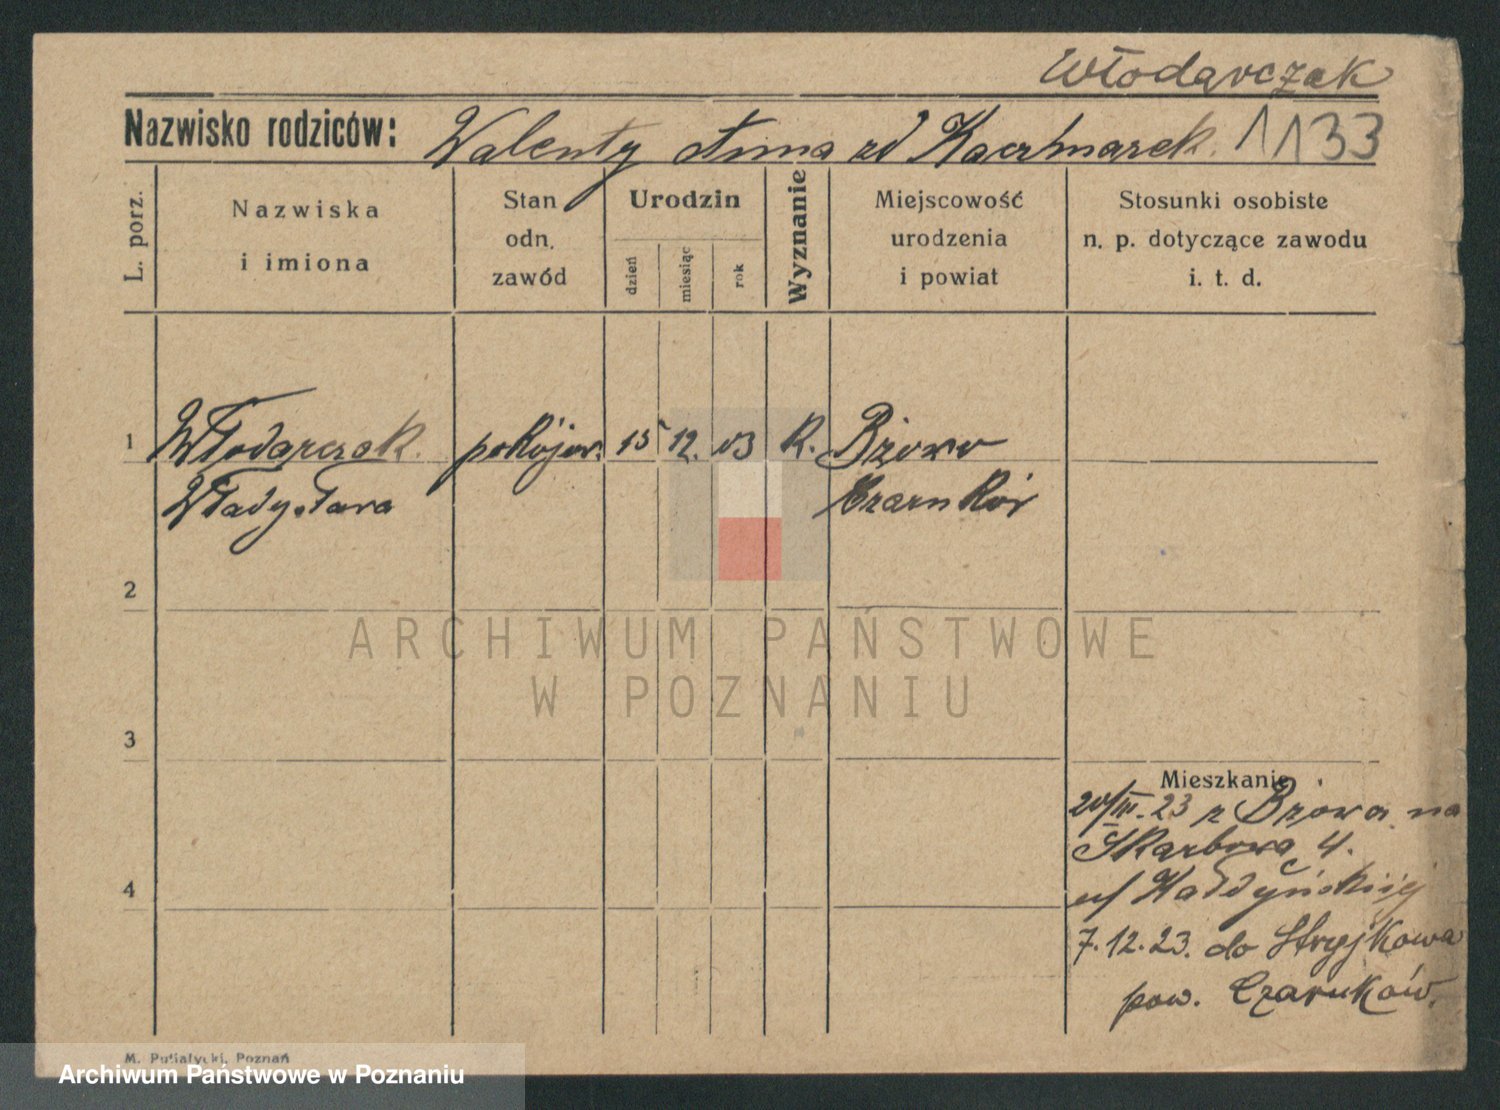 Włodarczak
Nazwisko rodziców: Walenty Anna zd Kaczmarek. 1133
L. porz.
Nazwiska
i imiona
Stan
odn.
zawód
Urodzin
dzień
miesiąc
rok
Wyznanie
Miejscowość
urodzenia
i powiat
Stosunki osobiste
n. p. dotyczące zawodu
i. t. d.
1 Włodarczak. pokójow. 15 12. 03 K. Bzowo
Władysława Czarnków
2
ARCHIWUM PAŃSTWOWE
W POZNANIU
3
Mieszkanie
20/III. 23 z Bzowa na
Skarbowa 4.
4
7. 12. 23. do
pow. Czarnków.
M. Putiatycki, Poznań
Archiwum Państwowe w Poznaniu